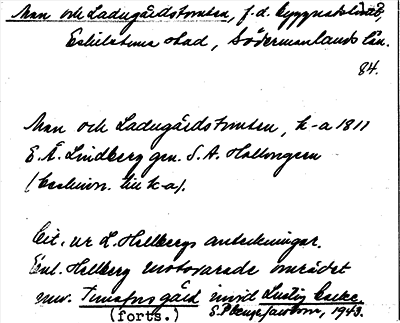 Man och Ladugårdstomten, f.d. byggnadslistat,
Eskilstuna stad, Södermanlands län.
84.
Man och Ladugårdstomten, k-a 1811
E. Ä. Lindberg gm. S. A. Hallongren
(beskrivn. till k-a).
Cit. ur L. Hellbergs anteckningar.
Enl. Hellberg motsvarade området
nuv. gård invid Lustig backe.
(forts.) 1943.